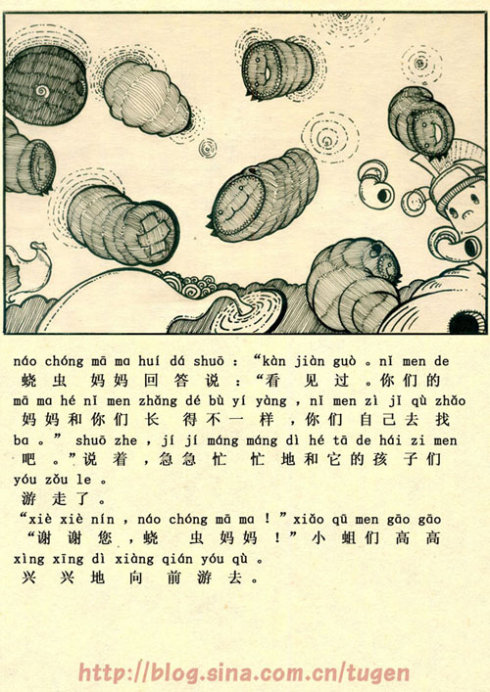 náo chóng mā ma huí dá shuō : “kàn jiàn guò 。nǐ men de
蛲 虫 妈 妈 回 答 说 : “看 见 过 。你 们 的
mā ma hé nǐ men zhǎng dé bù yí yàng , nǐ men zì jǐ qù zhǎo
妈 妈 和 你 们 长 得 不 一 样 , 你 们 自 己 去 找
ba 。” shuō zhe , jí jí máng máng dì hé tā de hái zi men
吧 。” 说 着 , 急 急 忙 忙 地 和 它 的 孩 子 们
yóu zǒu le 。
游 走 了 。
“xiè xiè nín , náo chóng mā ma ! ” xiǎo qū men gāo gāo
“谢 谢 您 , 蛲 虫 妈 妈 ! ” 小 蛆 们 高 高
xìng xīng dì xiàng qián yóu qù 。
兴 兴 地 向 前 游 去 。
http://blog.sina.com.cn/tugen